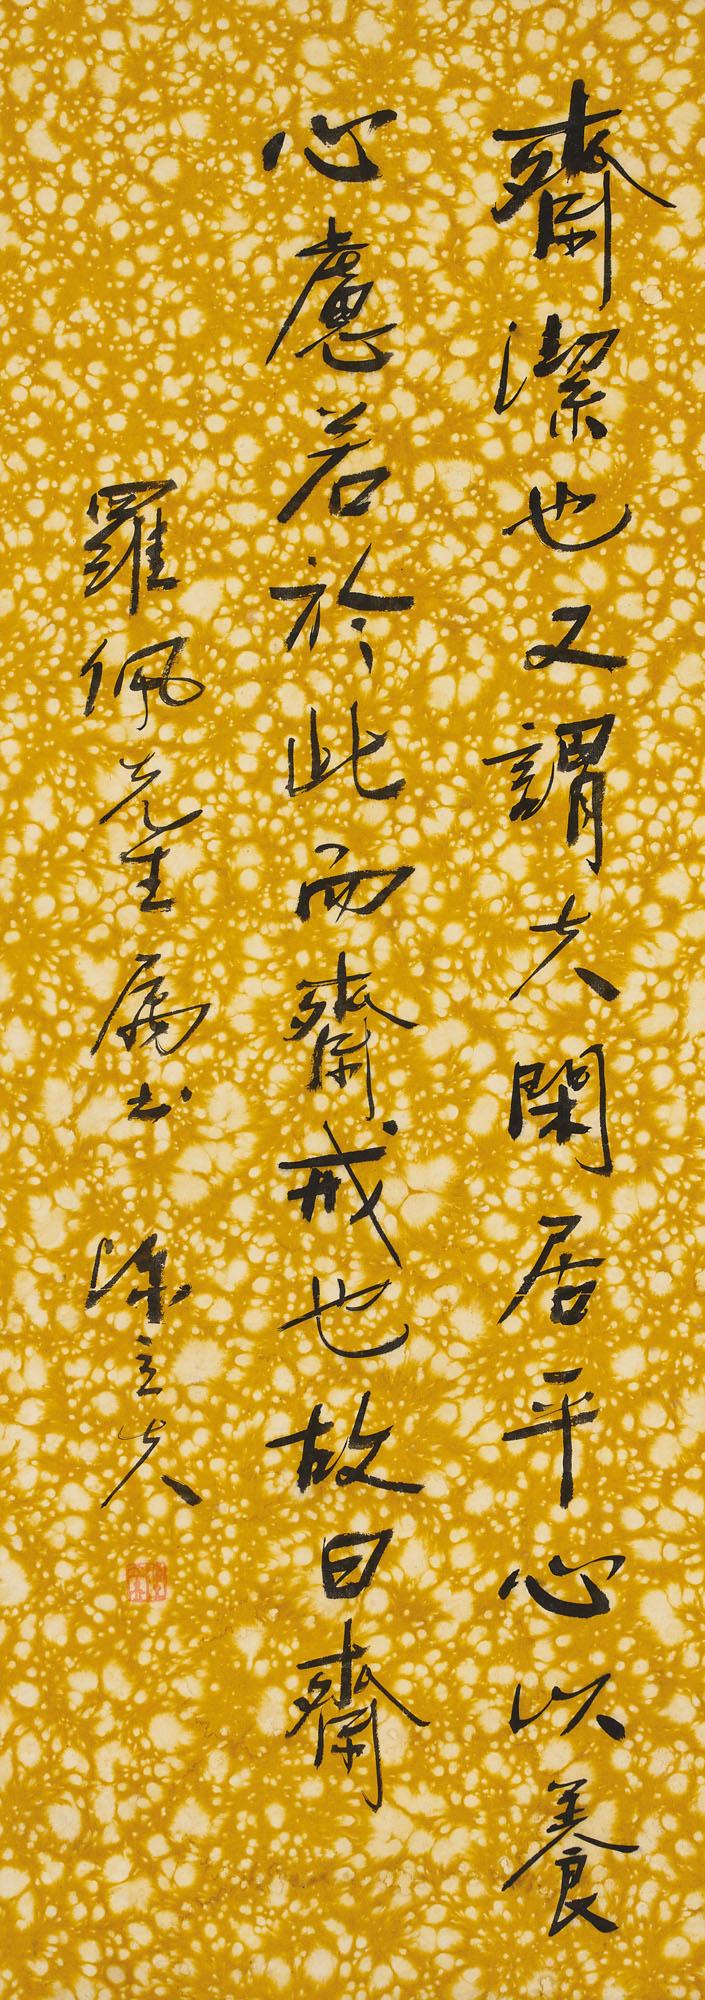 齋潔也又謂夫閑居平心以養
心慮若於此而齋戒也故曰齋
羅佩先生属书 陳立夫